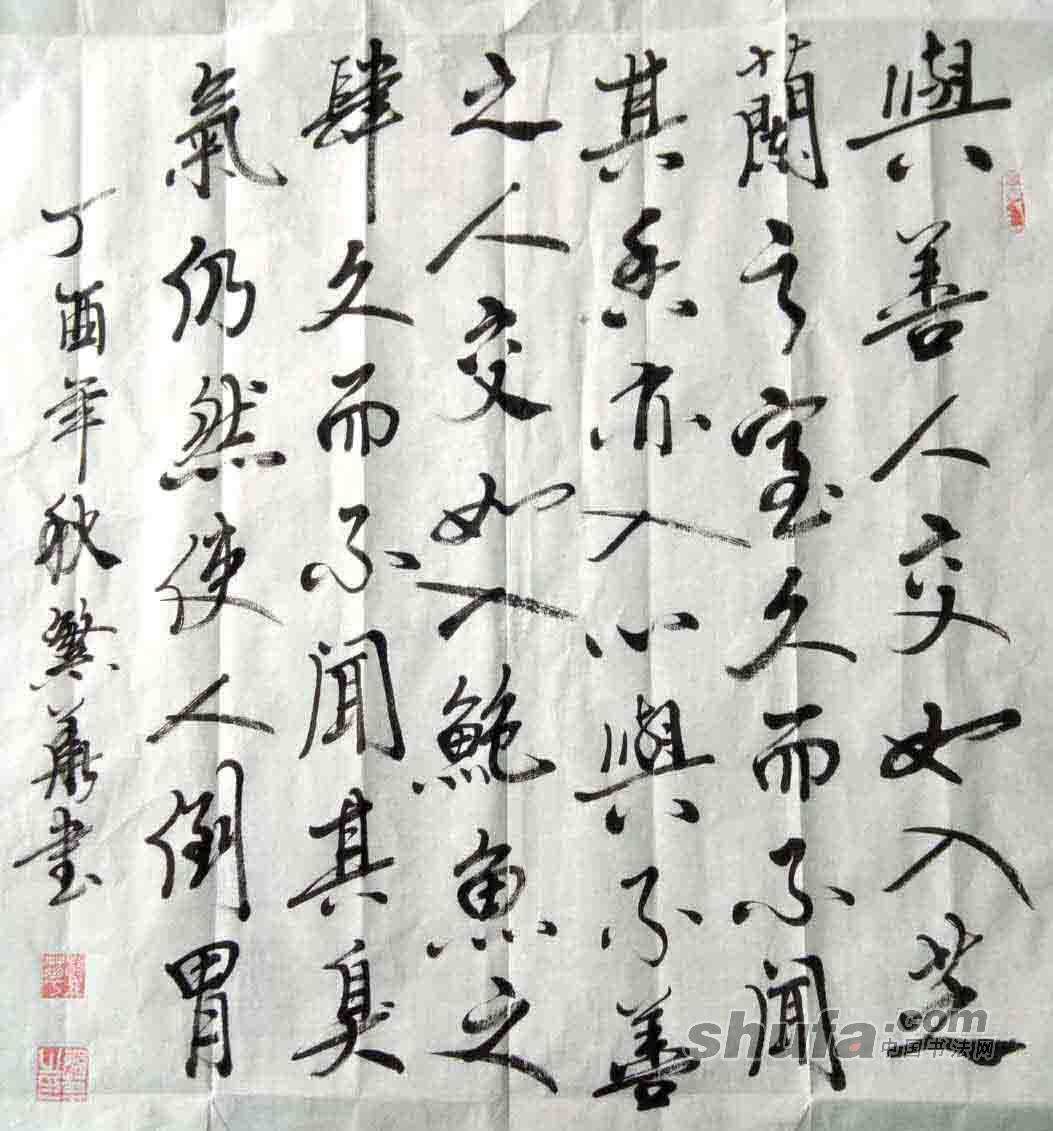 與善人交如入芝
蘭之室久而不聞
其香亦入心與不善
之人交如入鮑魚之
肆久而不聞其臭
氣仍然使人倒胃
丁酉年秋書
shufa.com
中国书法网